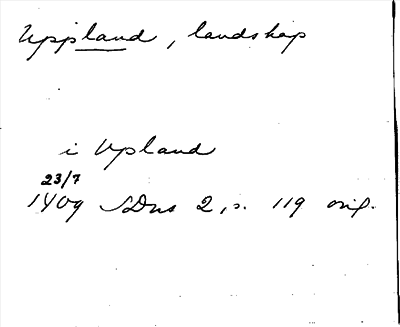 Uppland, landskap
i Upland
23/7
1409 SDns 2, s. 119 orig.